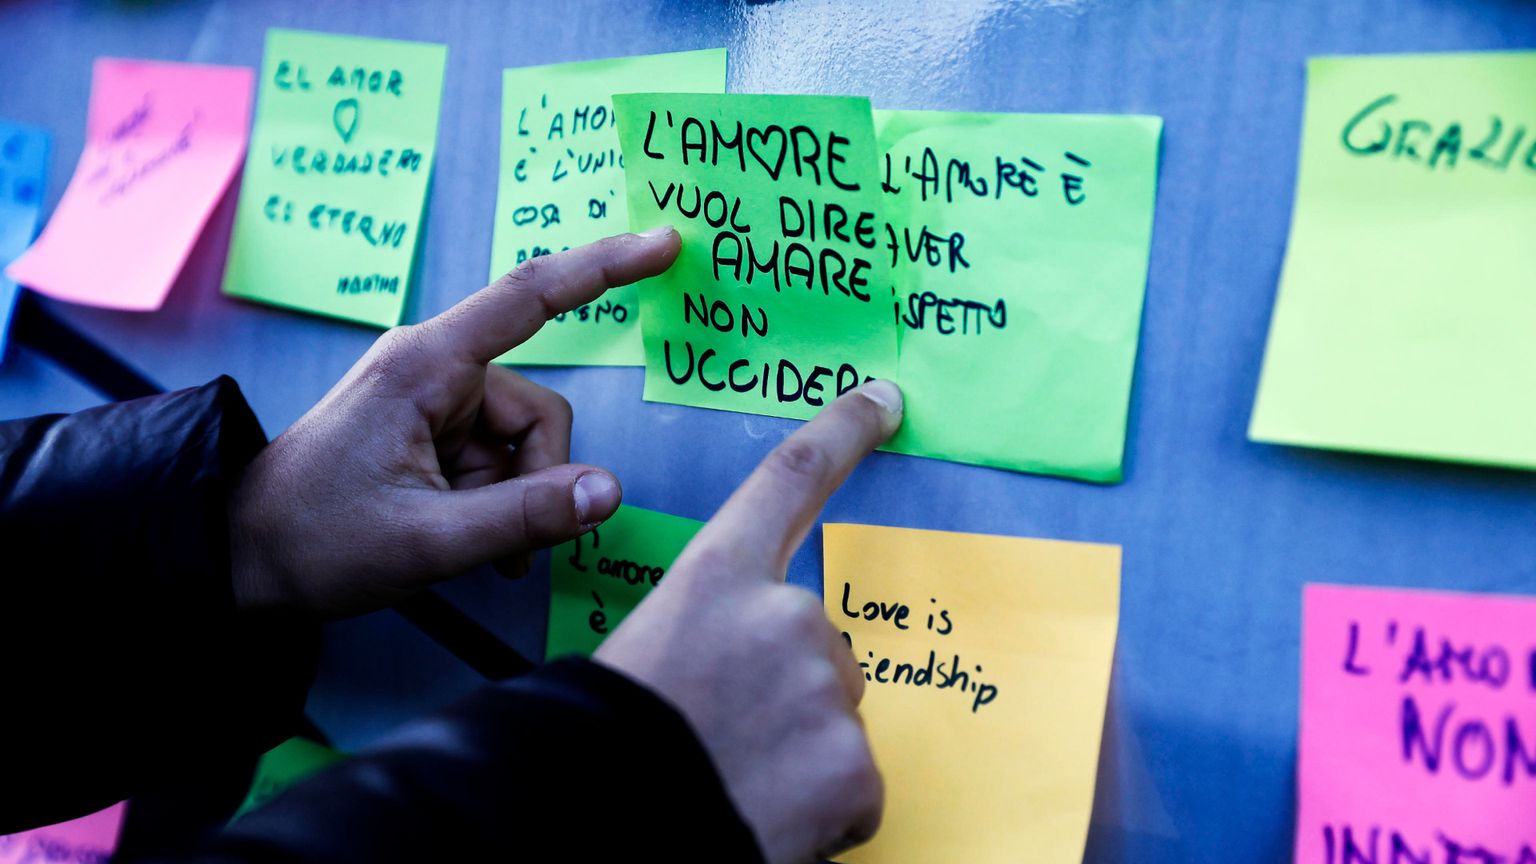 EL AMOR
VERDADERO
ES ETERNO
MARTHA
L'AMO
È L'UNIC
COSA DI
L'AMORE
VUOL DIRE
AMARE
NON
UCCIDERE
L'AMORE È
AVER
ISPETTO
GRAZIE
L'amore
è
Love is
friendship
L'AMO
NON